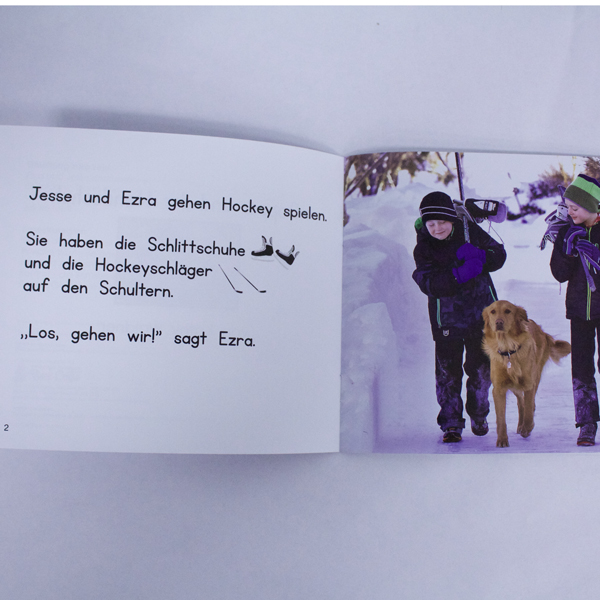 Jesse und Ezra gehen Hockey spielen.
Sie haben die Schlittschuhe
und die Hockeyschläger
auf den Schultern.
„Los, gehen wir!” sagt Ezra.
2